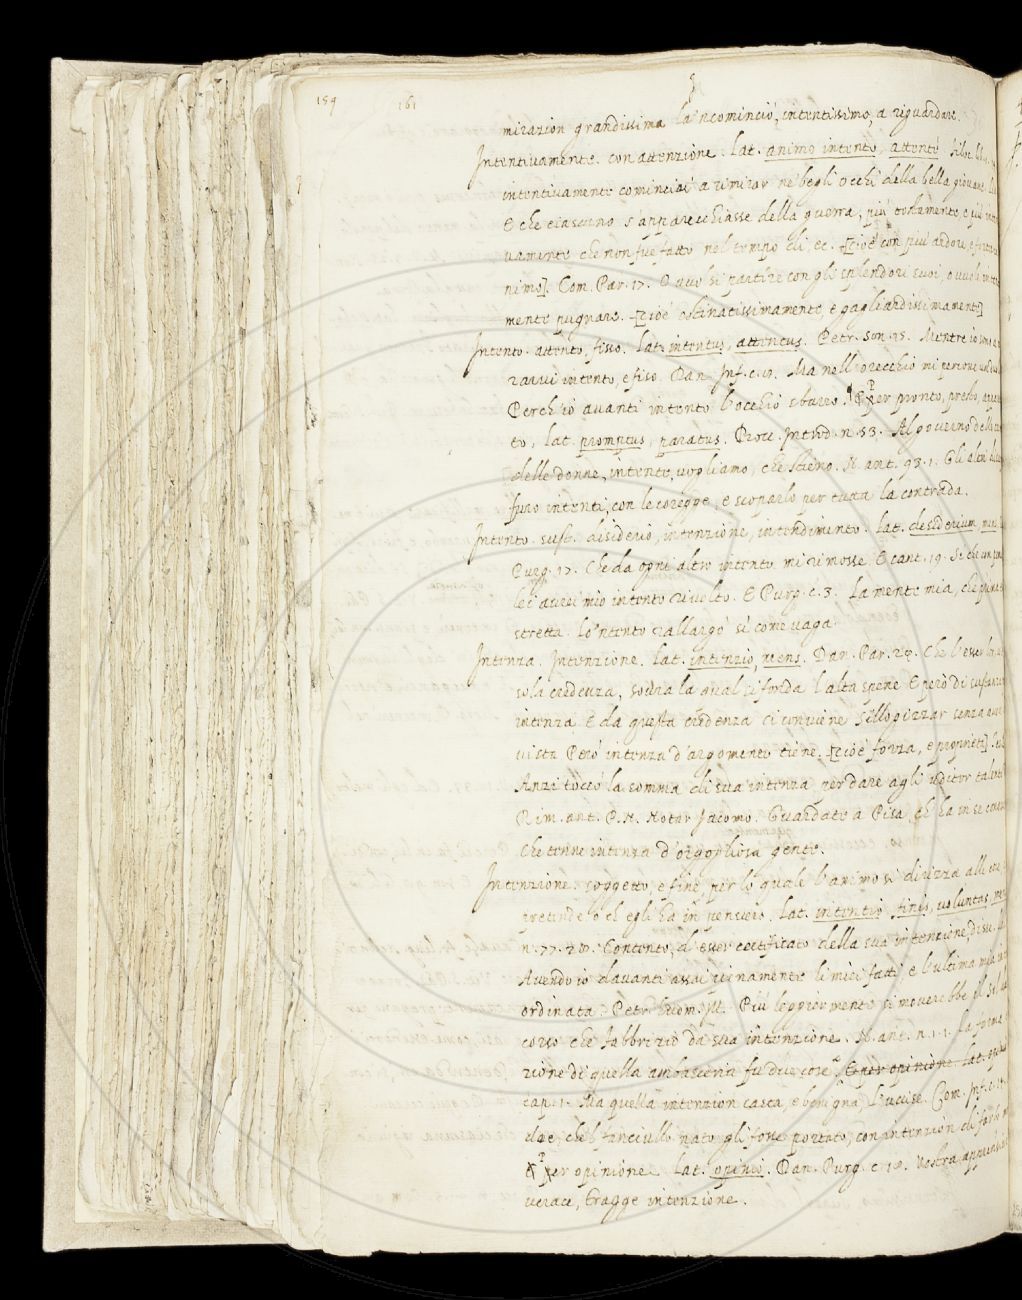 159 161
In
mirazion grandissima la'ncominciò, intentissimo, a riguardare.
Intentivamente. con attenzione. lat. animo intento, attente
intentivamente cominciai a rimirar ne begli occhi della bella giovane
E che ciascuno s'apparecchiasse della guerra, più tostamente, e più
vamente che non fue fatto nel tempo di ec. [cioè con più ardore, e
nimo]. Com. Par. 17. O vuol si partire con gli splendori suoi, o vuol
mente pugnare. [cioè ostinatissimamente, e gagliardissimamente]
Intento. attento, fisso. lat. intentus, attentus. Petr. son. 75. Mentre io
rarvi intento, e fiso. Dan. Inf. c. 8. Ma nell'orecchio mi percosse un duolo
Perch'io avanti intento l'occhio sbarro. ¶ Per pronto, presto,
to, lat. promptus, paratus. Bocc. Introd. n. 53. Al governo della
delle donne, intente, vogliamo, che stieno. N. ant. 93. 1. Gli altri
furo intenti, con le coregge, e scoparlo per tutta la contrada.
Intento. sust. disiderio, intenzione, intendimento. lat. desiderium,
Purg. 17. Che da ogni altro intento mi rimosse. E cant. 19. Se che un
lei avrei mio intento rivolto. E Purg. c. 3. La mente mia, che prima
stretta. Lo'ntento rallargò sì come vaga
Intenza. Intenzione. lat. intentio, mens. Dan. Par. 24. Che l'esser
sola credenza, sovra la qual si fonda l'alta spene E però di sustanza
intenza E da questa credenza ci conviene Sillogizzar senza
vista Però intenza d'argomento tiene. [cioè forza, e proprietà]
Anzi toccò la somma di sua intenza per dare agli uditor
Rim. ant. P. N. Notar Jacomo. Guardate a Pisa, ch'ha in se
Che tenne intenza d'orgogliosa gente.
Intenzione. soggetto, e fine, per lo quale l'animo si dirizza alle
pretende o ch'egli ha in pensiero. lat. intentio, finis, voluntas,
n. 77. Contento, d'esser certificato della sua intenzione,
Avendo io davanti assai pienamente li miei fatti, e l'ultima mia
ordinata. Petr. huom. ill. Più leggiermente si moverebbe il
corso che Fabbrizio da sua intenzione. N. ant. n. 1. 1. La forma
zione di quella ambasceria fu due cose. E per opinione. lat.
cap. 1. Ma quella intenzion casta, e benigna, l'uccise. Com. Inf. c.
che'l fanciullo nato gli fosse portato, con intenzion di farlo
¶ Per opinione. lat. opinio. Dan. Purg. c. 18. Vostra
verace, tragge intenzione.